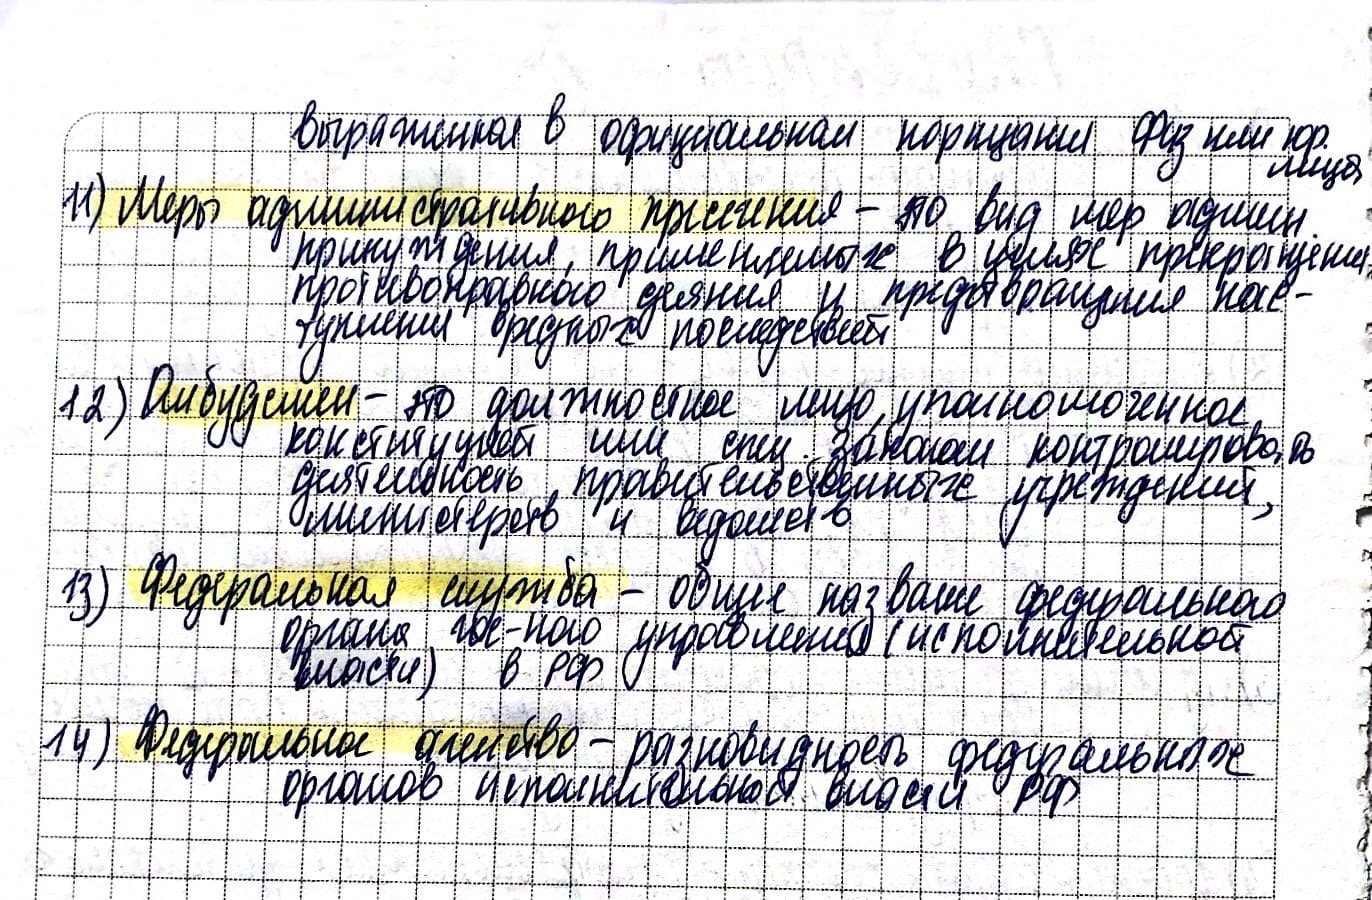 выраженная в официальном порицании физ или юр.
лица
11) Меры административного пресечения - это вид мер админ
принуждения, применяемых в целях прекращения
противоправного деяния и предотвращения нас-
тупления вредных последствий
12) Омбудсмен - это должностное лицо, уполномоченное
конституцией или спец. законом контролировать
деятельность правительственных учреждений,
министерств и ведомств
13) Федеральная служба - общее название федерального
органа гос-ного управления (исполнительной
власти) в РФ
14) Федеральное агенство - разновидность федеральных
органов исполнительной власти РФ